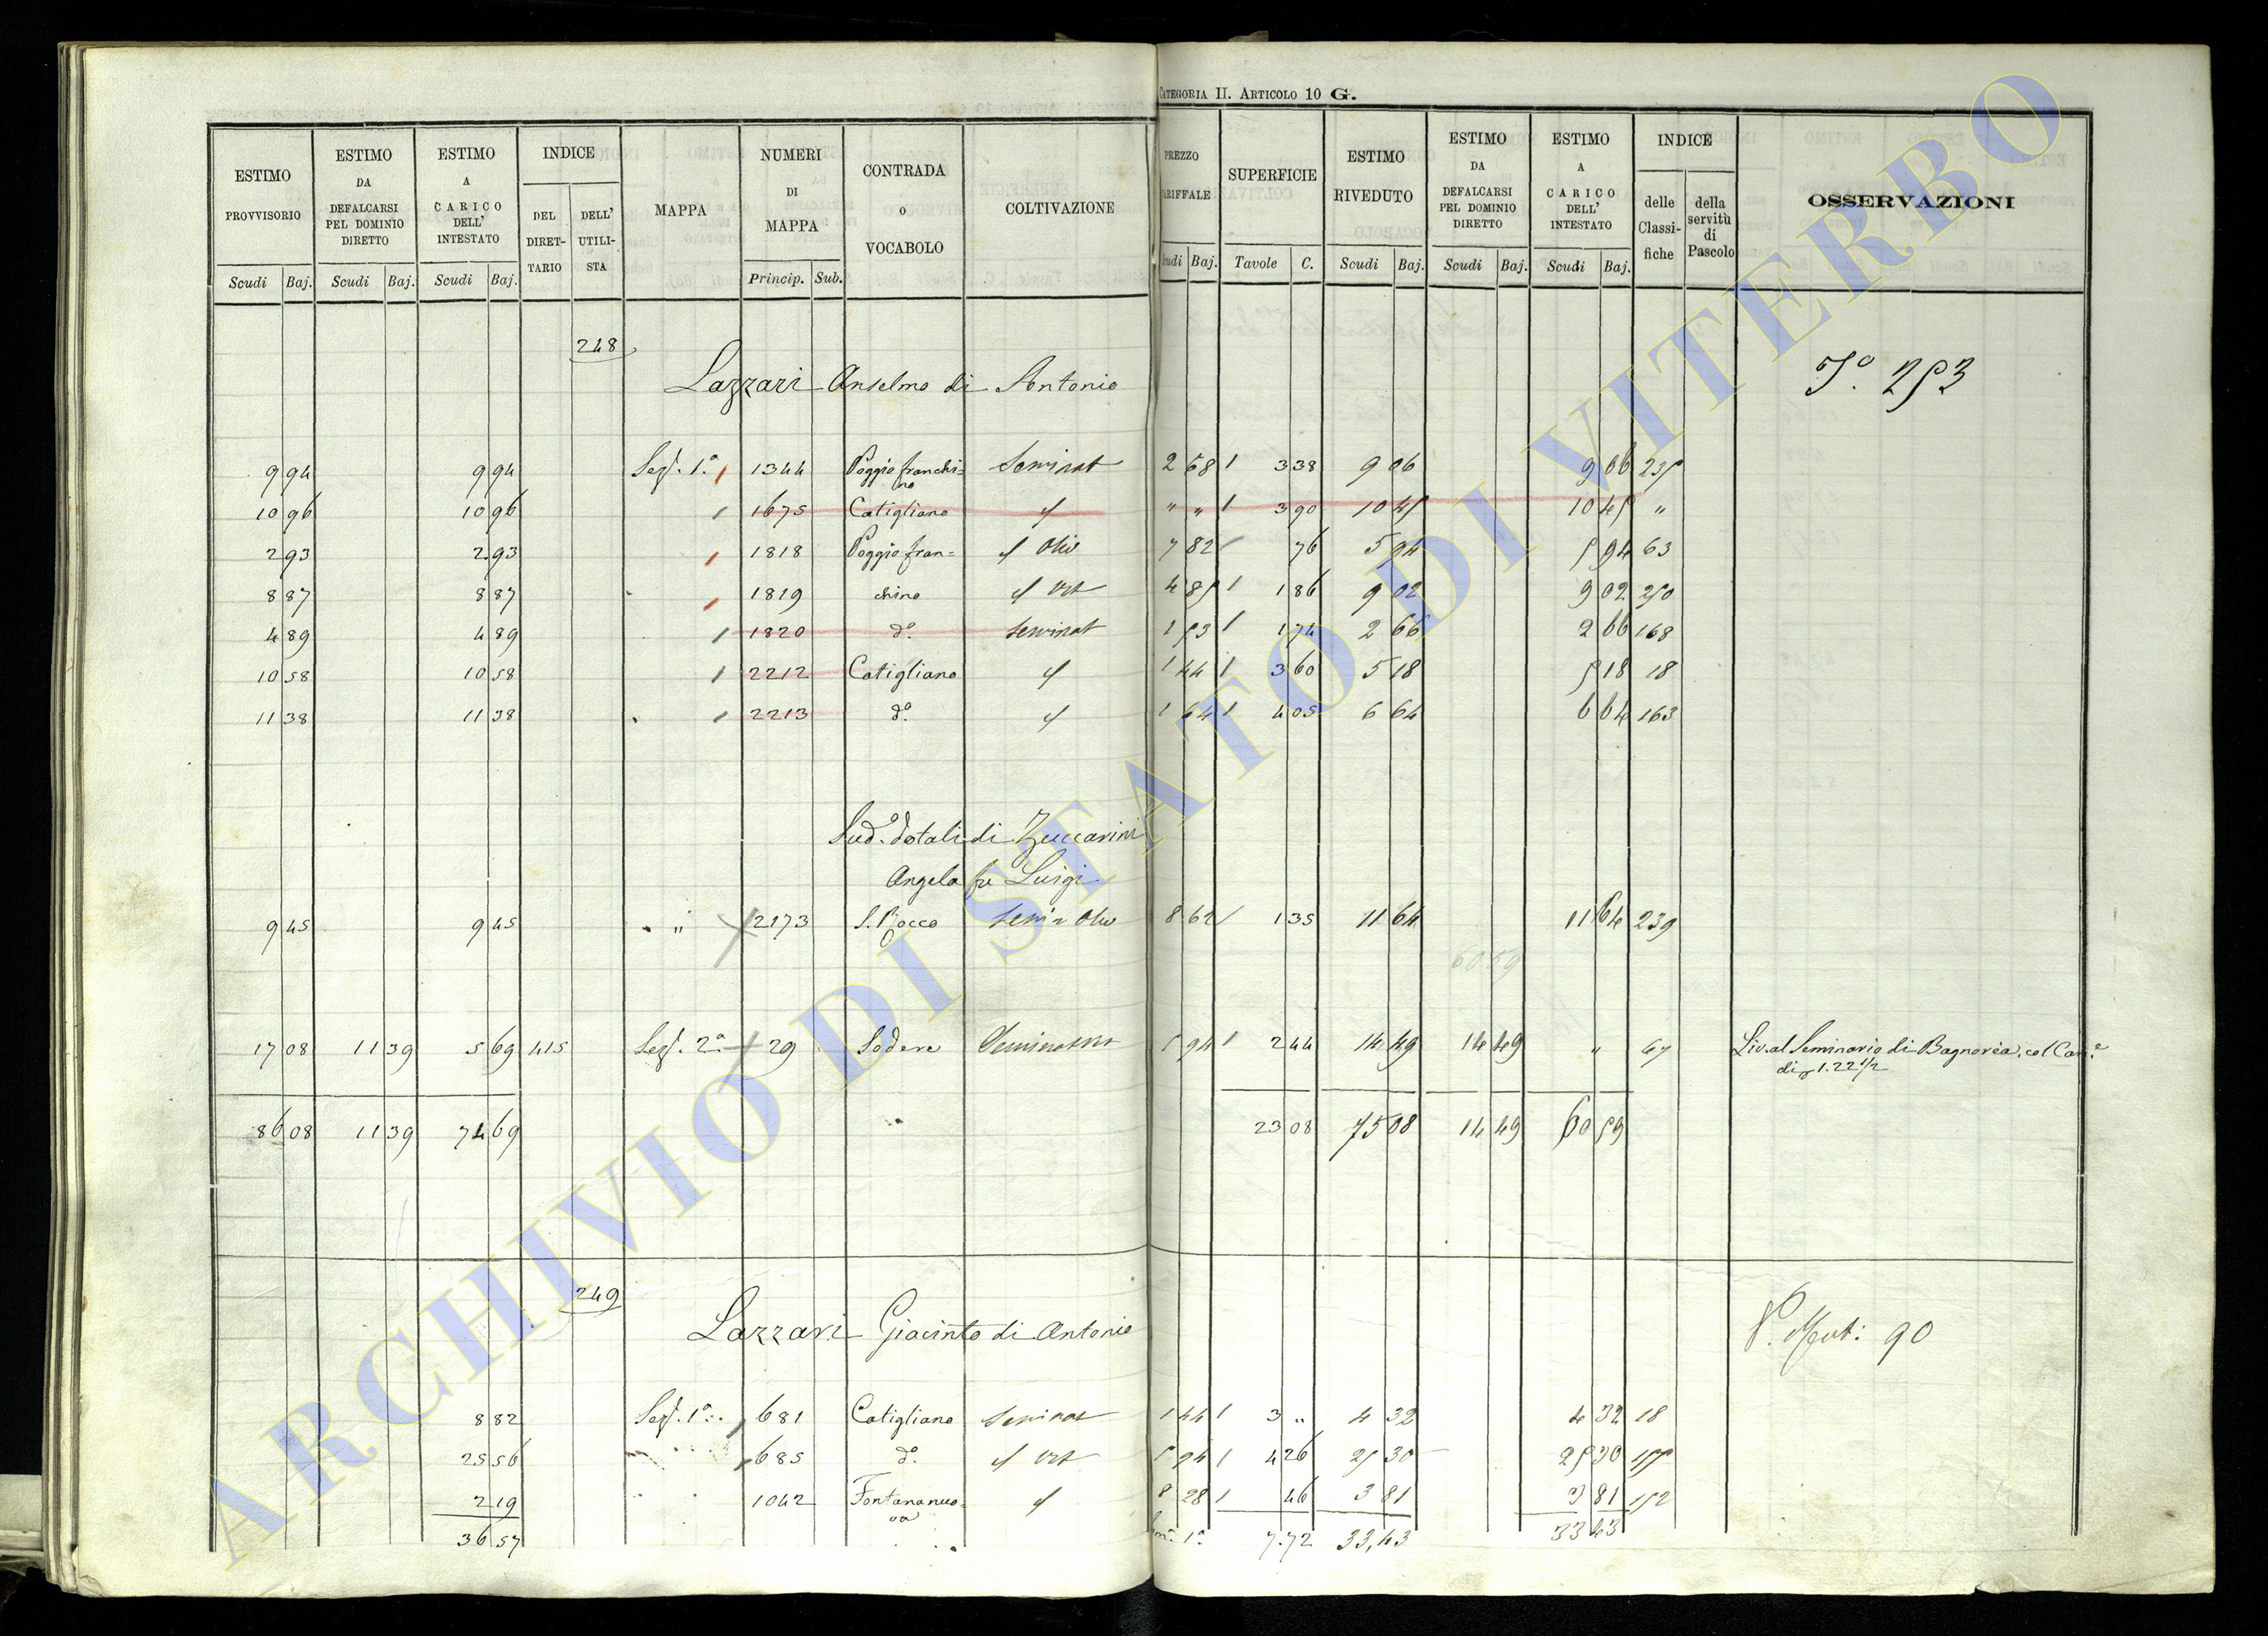 CATEGORIA II. ARTICOLO 10 G.
ESTIMO PROVVISORIO | ESTIMO DA DEFALCARSI PEL DOMINIO DIRETTO | ESTIMO A CARICO DELL' INTESTATO | INDICE | MAPPA | NUMERI DI MAPPA | CONTRADA O VOCABOLO | COLTIVAZIONE | PREZZO TARIFFALE | SUPERFICIE | ESTIMO RIVEDUTO | ESTIMO DA DEFALCARSI PEL DOMINIO DIRETTO | ESTIMO A CARICO DELL' INTESTATO | INDICE | OSSERVAZIONI
DEL DIRETTARIO | DELL' UTILISTA | delle Classifiche | della servitù di Pascolo
Scudi | Baj. | Scudi | Baj. | Scudi | Baj. | Princip. | Sub. | Scudi | Baj. | Tavole | C. | Scudi | Baj. | Scudi | Baj. | Scudi | Baj.
248
Lazzari Anselmo di Antonio | 253
9 94 | 9 94 | Sez. 1ª | 1344 | Poggio franchino | Seminat | 2 68 | 3 38 | 9 06 | 9 06 | 235
10 96 | 10 96 | 1675 | Catigliano | " | " " | 3 90 | 10 45 | 10 45 | "
2 93 | 2 93 | 1818 | Poggio fran= | " Oliv | 7 82 | 76 | 5 94 | 5 94 | 63
8 87 | 8 87 | 1819 | chino | " Vit | 4 85 | 1 86 | 9 02 | 9 02 | 250
4 89 | 4 89 | 1820 | dº | Seminat | 1 53 | 1 74 | 2 66 | 2 66 | 168
10 58 | 10 58 | 2212 | Catigliano | " | 1 44 | 3 60 | 5 18 | 5 18 | 18
11 38 | 11 38 | 2213 | dº | " | 1 64 | 4 05 | 6 64 | 6 64 | 163
Sudº dotali di Zuccarini
Angela fu Luigi
9 45 | 9 45 | " | 2173 | S. Rocco | Semin Oliv | 8 62 | 1 35 | 11 64 | 11 64 | 239
60 59
17 08 | 11 39 | 5 69 | 415 | Sez. 2ª | 29 | Sodere | Seminativo | 5 94 | 2 44 | 14 49 | 14 49 | " | 67 | Liv. al Seminario di Bagnorea, col Cane
di 1.22 1/2
86 08 | 11 39 | 74 69 | 23 08 | 75 08 | 14 49 | 60 59
249
Lazzari Giacinto di Antonio | 90
8 82 | Sez. 1ª | 681 | Catigliano | Seminat | 1 44 | 3 " | 4 32 | 4 32 | 18
25 56 | 685 | dº | " Vit | 5 94 | 4 26 | 25 30 | 25 30 | 155
2 19 | 1042 | Fontananuova | " | 8 28 | 46 | 3 81 | 3 81 | 152
36 57 | 7.72 | 33,43 | 33 43
ARCHIVIO DI STATO DI VITERBO